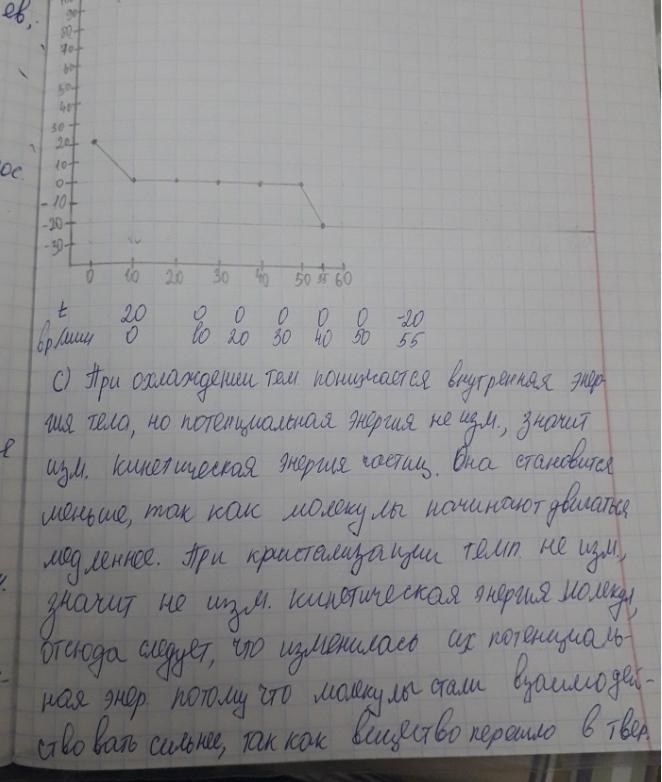 ев,
90
80
70
60
50
40
30
20
10
0
-10
-20
-30
0 10 20 30 40 50 55 60
ос.
t 20 0 0 0 0 0 -20
вр/мин 0 10 20 30 40 50 55
С) При охлаждении тем понижается внутренная энер-
гия тела, но потенциальная энергия не изм., значит
изм. кинетическая энергия частиц. Она становится
меньше, так как молекулы начинают двигаться
медленнее. При кристализации темп. не изм.,
значит не изм. кинетическая энергия молекул,
отсюда следует, что изменилась их потенциаль-
ная энер. потому что молекулы стали взаимодей-
ствовать сильнее, так как вещество перешло в твер.